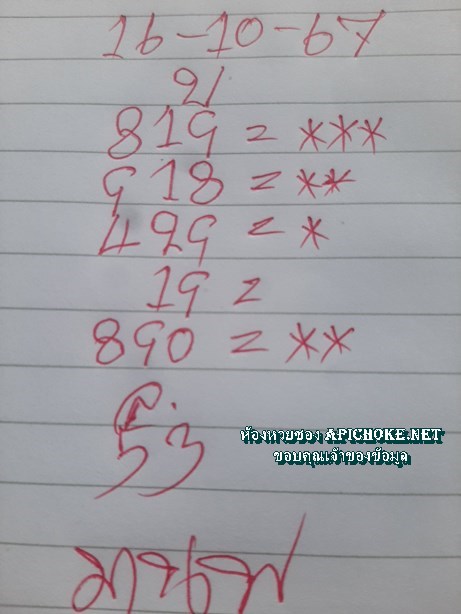 16-10-67
บ
819 = ***
918 = **
499 = *
19 =
890 = **
ล.
53
ห้องหวยซอง APICHOKE.NET
ขอบคุณเจ้าของข้อมูล